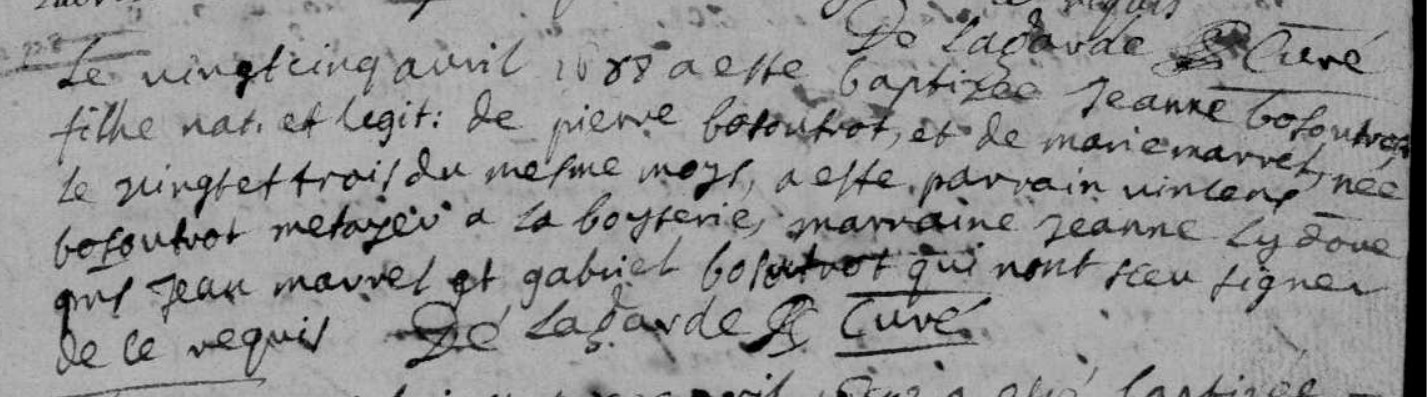 De Lagarde Curé
Le vingtcinq avril 1688 a este baptizée Jeanne bosoutrot
filhe nat. et legit: de pierre bosoutrot, et de marie marrel, née
le vingt et trois du mesme moys, a este parrain vincens
bosoutrot metayer a la boyserie, marraine Jeanne Lydove
pns Jean marrel et gabriel bosoutrot qui nont sceu signer
de ce requis De Lagarde Curé
avril a esté baptizée